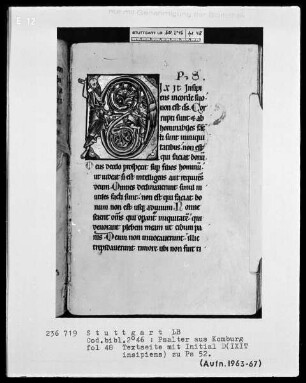 E 12
STUTTGART LB
fol 48
P S
IXIT Insipi
ens incorde suo
non est ds. Cor
rupti sunt & ab
hominabiles fac
ti sunt ininiqui
tatibus non est
qui faciat bonu
Deus decelo prospexit sup filios hominu
ut videat si est intelligens aut requirens
deum. Omnes declinaverunt simul in
utiles facti sunt non est qui faciat bo
num non est usq; adunum. Nonne
scient oms qui opant iniquitate qui
devorant plebem meam ut cibum pa
nis. Deum non invocaverunt illic
trepidaverunt timore ubi non fuit ti
236 719 Stuttgart LB
Cod.bibl.2°46 : Psalter aus Komburg
fol 48 Textseite mit Initial D(IXIT
insipiens) zu Ps 52.
(Aufn.1963-67)